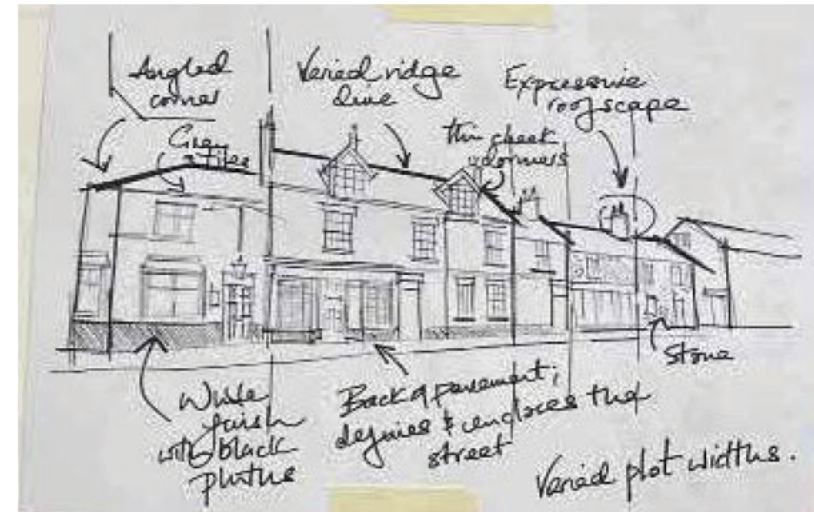 Angled
corner
Varied ridge
line
Expressive
roofscape
Grey
tiles
thin cheek
dormers
Stone
White
finish
with black
plinths
Back of pavement;
defines & encloses the
street
Varied plot widths.